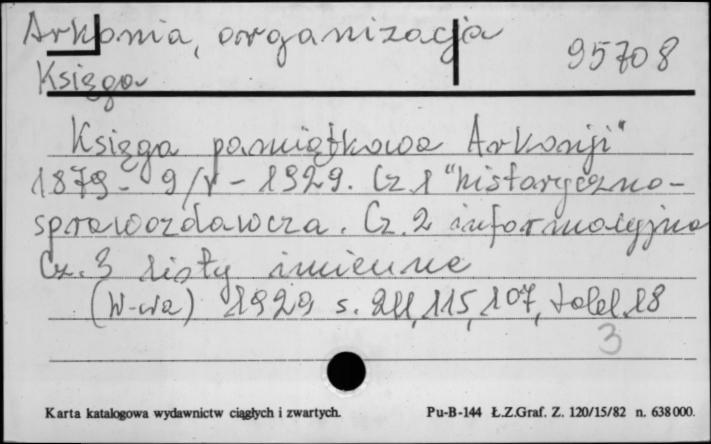 Arkonia, organizacja
95708
Księga
Księga pamiątkowa Arkonji"
1879 - 9/V - 1929. Cz. 1 "historyczno-
sprawozdawcza. Cz. 2 informacyjna
Cz. 3 listy imienne
(W-wa) 1929 s. 211, 115, 107, tabl. 18
3
Karta katalogowa wydawnictw ciągłych i zwartych. Pu-B-144 Ł.Z.Graf. Z. 120/15/82 n. 638000.